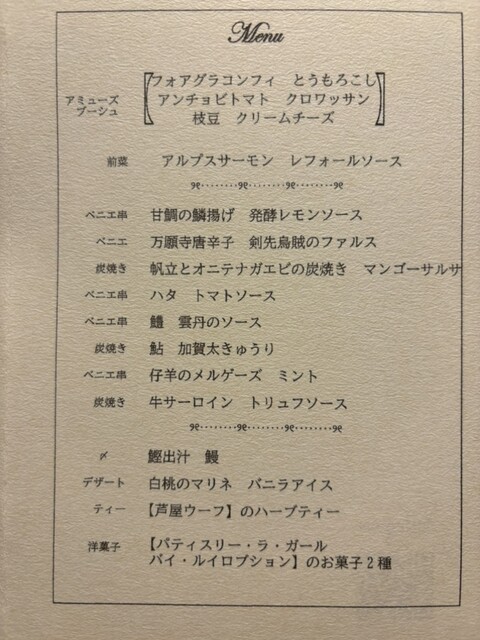 Menu
フォアグラコンフィ とうもろこし
アミューズ ブーシュ アンチョビトマト クロワッサン
枝豆 クリームチーズ
前菜 アルプスサーモン レフォールソース
ベニエ串 甘鯛の鱗揚げ 発酵レモンソース
ベニエ 万願寺唐辛子 剣先烏賊のファルス
炭焼き 帆立とオニテナガエビの炭焼き マンゴーサルサ
ベニエ串 ハタ トマトソース
ベニエ串 鱧 雲丹のソース
炭焼き 鮎 加賀太きゅうり
ベニエ串 仔羊のメルゲーズ ミント
炭焼き 牛サーロイン トリュフソース
〆 鰹出汁 鰻
デザート 白桃のマリネ バニラアイス
ティー 【芦屋ウーフ】のハーブティー
洋菓子 【パティスリー・ラ・ガール
バイ・ルイロブション】のお菓子2種